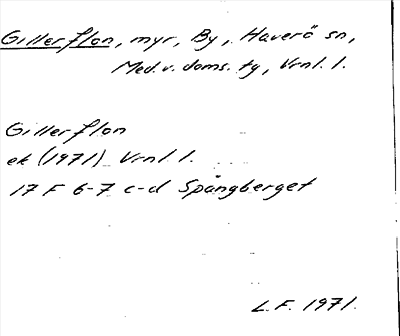 Gillerflon, myr, By, Haverö sn,
Med. v. doms. tg, Vrnl. l.
Gillerflon
ek (1971) Vrnl. l.
17 F 6-7 c-d Spångberget
L.F. 1971.